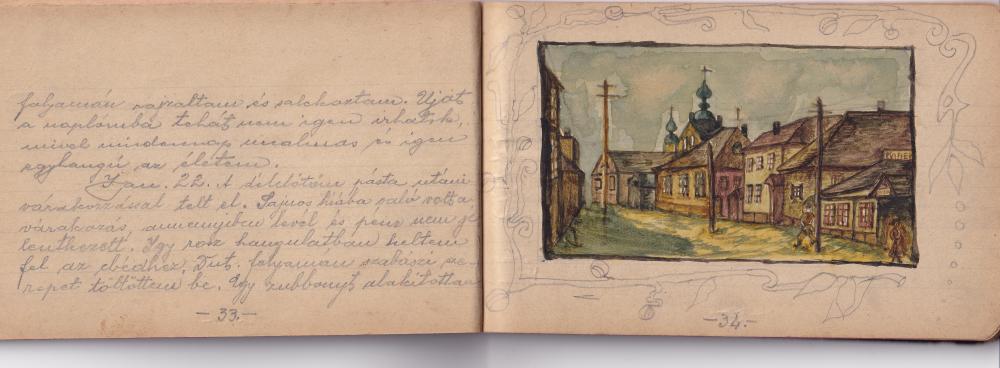 folyamán rajzoltam és salchoztam. Ujat
a naplómba tehát nem igen irhatok,
mivel mindennap unalmas és igen
egyhangú az életem.
Jan. 22. A délelőttöm pósta utáni
várakozással telt el. Sajnos hiába való volt a
várakozás, amennyiben levél és pénz nem je
lentkezett. Igy rossz hangulatban keltem
fel az ebédhez. Dut. folyamán szabászi sze
repet töltöttem be. Egy zubbonyt alakítottam
-33.-
-34.-